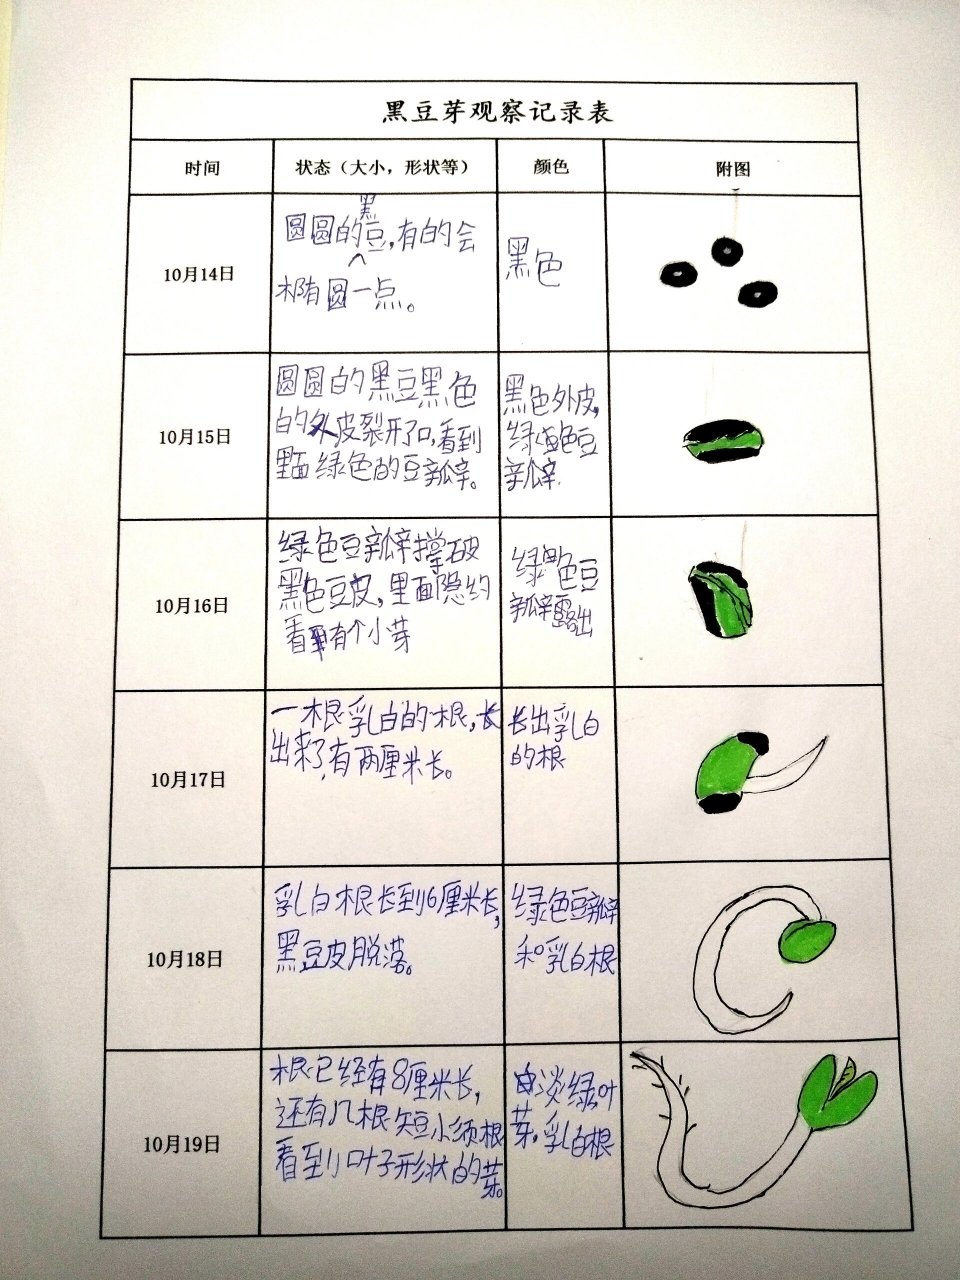 黑豆芽观察记录表
时间 状态（大小，形状等） 颜色 附图
10月14日
圆圆的黑豆，有的会
椭圆一点。
黑色
10月15日
圆圆的黑豆黑色
的外皮裂开了口，看到
里面绿色的豆瓣。
黑色外皮，
绿色豆
瓣
10月16日
绿色豆瓣撑破
黑色豆皮，里面隐约
看到有个小芽
绿色豆
瓣露出
10月17日
一根乳白的根，长
出来了，有两厘米长。
长出乳白
的根
10月18日
乳白根长到6厘米长，
黑豆皮脱落。
绿色豆瓣
和乳白根
10月19日
根已经有8厘米长，
还有几根短小须根
看到叶子形状的芽。
淡绿叶
芽。乳白根